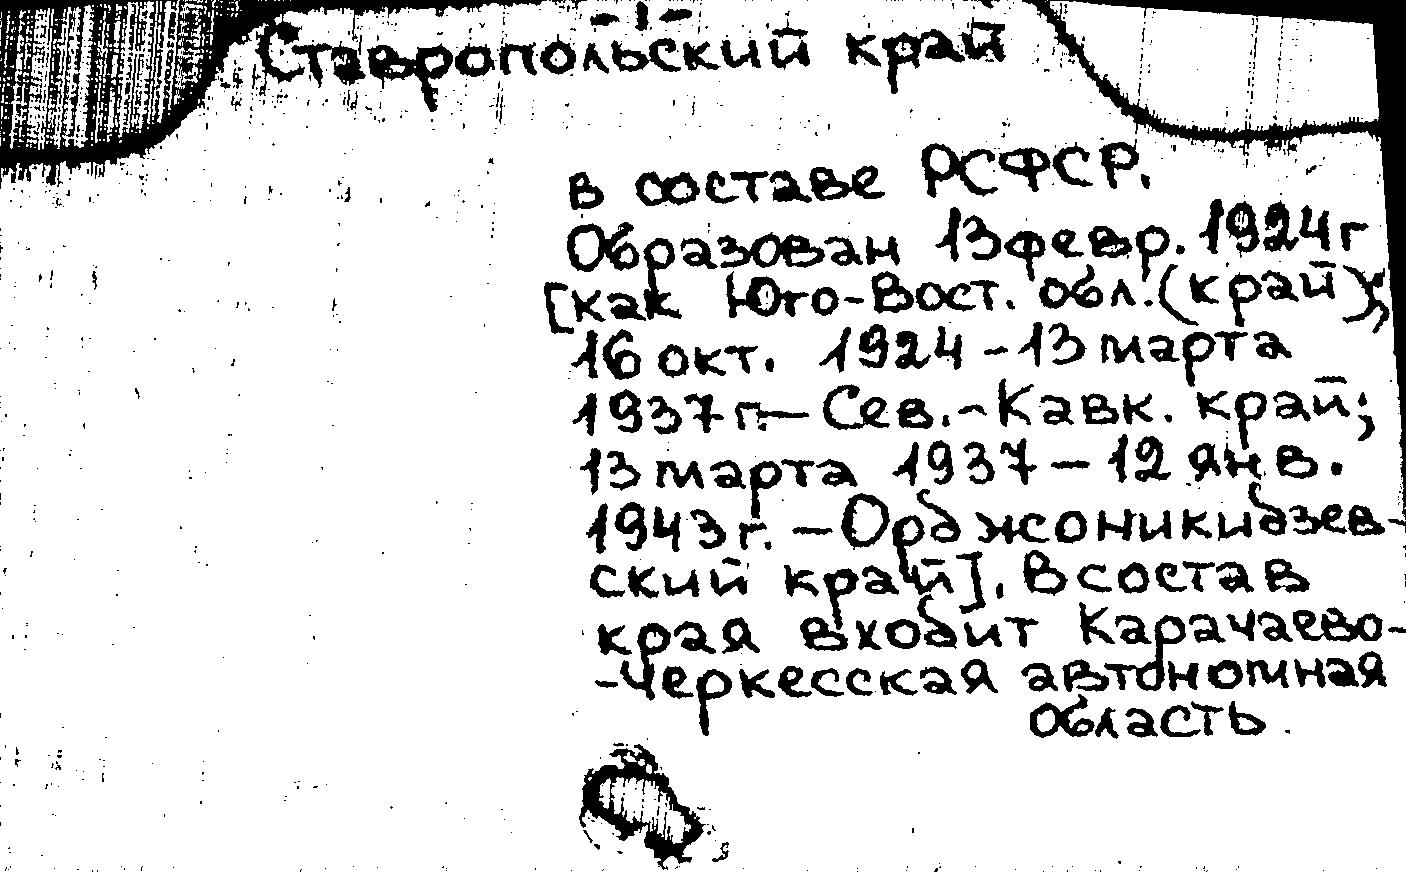 Ставропольский край
в составе РСФСР.
Образован 13 февр. 1924 г
[как Юго-Вост. обл.(край);
16 окт. 1924 – 13 марта
1937 г. – Сев.-Кавк. край;
13 марта 1937 – 12 янв.
1943 г. – Орджоникидзев-
ский край]. В состав
края входит Карачаево-
-Черкесская автономная
область.